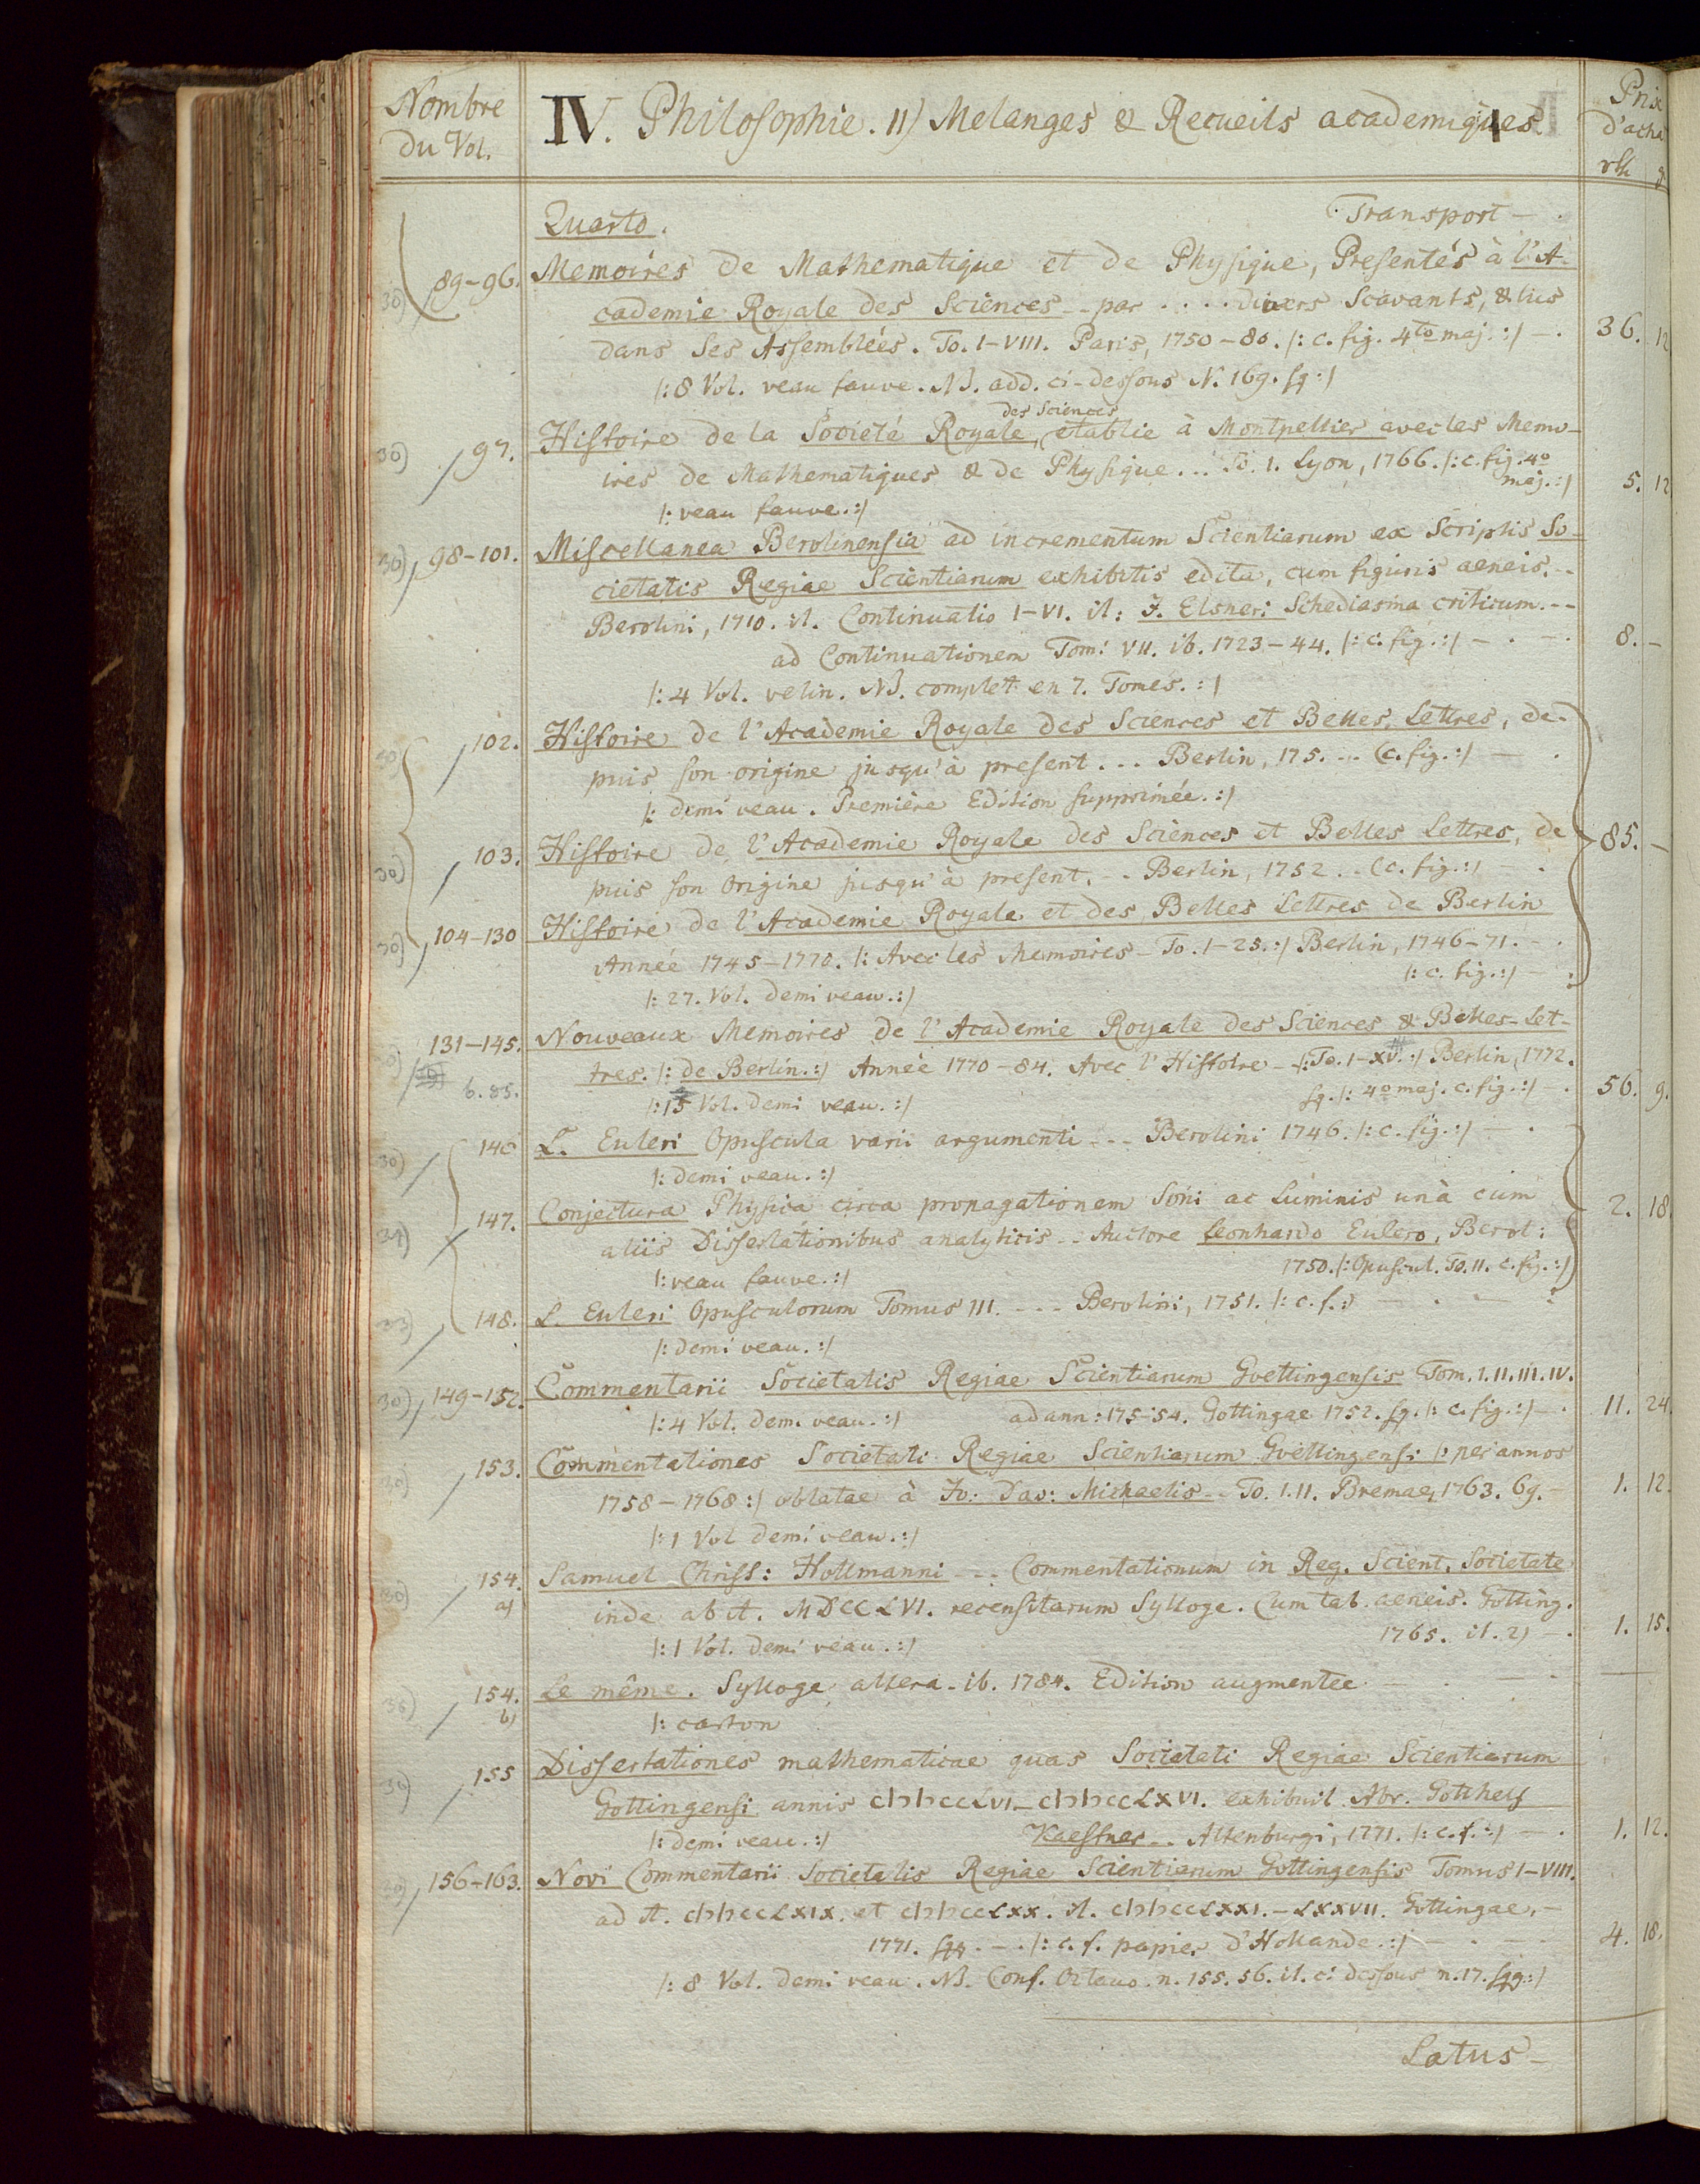 Nombre
du Vol.
IV. Philosophie. 11) Melanges & Recueils academiques
Prix
d'acha
rth g
Quarto.
Transport — .
30) 89-96. Memoires de Mathematique et de Physique, Presentés à l'A-
cademie Royale des Sciences -- par .... divers Scavants, & lus
dans ses Assemblées. To. I-VIII. Paris, 1750-80. |: c. fig. 4to maj. :| — . 36. 12
|: 8 Vol. veau fauve. NB. add. ci-dessous N. 169. sq :|
des Sciences
30) 97. Histoire de la Societé Royale, etablie à Montpellier avec les Memo-
ires de Mathematiques & de Physique ... To. 1. Lyon, 1766. |: c. fig. 4o
maj. :| 5. 12
|: veau fauve. :|
30) 98-101. Miscellanea Berolinensia ad incrementum Scientiarum ex Scriptis So-
cietatis Regiae Scientiarum exhibitis edita, cum figuris aeneis. --
Berolini, 1710. it. Continuatio I-VI. it: J. Elsneri Schediasma criticum. --
ad Continuationem Tomi VII. ib. 1723-44. |: c. fig. :| — . — . 8. —
|: 4 Vol. velin. NB. complet en 7. Tomes. :|
30) 102. Histoire de l'Academie Royale des Sciences et Belles Lettres, de-
puis son origine jusqu'à present ... Berlin, 175. ... (c. fig. :| — .
|: demi veau. Première Edition supprimée. :|
30) 103. Histoire de l'Academie Royale des Sciences et Belles Lettres, de 85. —
puis son Origine jusqu'à present. -- Berlin, 1752 .. (c. fig. :| — .
30) 104-130 Histoire de l'Academie Royale et des Belles Lettres de Berlin
Année 1745-1770. |: Avec les Memoires - To. 1-25. :| Berlin, 1746-71. - .
|: c. fig. :| — .
|: 27. Vol. demi veau. :|
131-145. Nouveaux Memoires de l'Academie Royale des Sciences & Belles-Let-
tres. |: de Berlin. :| Année 1770-84. Avec l'Histoire - |: To. 1-XV. :| Berlin, 1772.
b. 85. sq. |: 4o maj. c. fig. :| . 56. 9.
|: 15 Vol. demi veau. :|
30) 146 L. Euleri Opuscula varii argumenti --- Berolini 1746. |: c. fig. :| — .
|: demi veau. :|
147. Conjectura Physica circa propagationem Soni ac Luminis unà cum 2. 18.
aliis Dissertationibus analyticis .. Auctore Leonhardo Eulero, Berol:
1750. |: Opuscul. To. II. c. fig. :|
|: veau fauve. :|
148. L. Euleri Opusculorum Tomus III. --- Berolini, 1751. |: c. f. :| — . — .
|: demi veau. :|
30) 149-152. Commentarii Societatis Regiae Scientiarum Goettingensis Tom. I. II. III. IV.
|: 4 Vol. demi veau. :| ad ann: 175-54. Gottingae 1752. sq. |: c. fig. :| — . 11. 24.
30) 153. Commentationes Societati Regiae Scientiarum Goettingensi |: per annos
1758-1768 :| oblatae à Jo: Dav: Michaelis -- To. I. II. Bremae, 1763. 69. — 1. 12.
|: 1 Vol demi veau. :|
30) 154. Samuel Christ: Hollmanni --- Commentationum in Reg. Scient. Societate
a) inde ab A. MDCCLVI. recensitarum Sylloge. Cum tab. aeneis. Gotting.
1765. it. 2) — . 1. 15.
|: 1 Vol. demi veau. :|
154. Le même. Sylloge altera - ib. 1784. Edition augmentée — . — —
b) |: carton
155 Dissertationes mathematicae quas Societati Regiae Scientiarum
Gottingensi annis cIↄIↄccLVI - cIↄIↄccLXVI. exhibuit Abr. Gotthelf
|: demi veau. :| Kaestner -- Altenburgi, 1771. |: c. f. :| — . 1. 12.
156-163. Novi Commentarii Societatis Regiae Scientiarum Gottingensis Tomus I-VIII.
ad A. cIↄIↄccLXIX. et cIↄIↄccLXX. it. cIↄIↄccLXXI. - LXXVII. Gottingae. -
1771. sqq. - . |: c. f. papier d'Hollande. :| — . — 4. 18.
|: 8 Vol. demi veau. NB. Conf. Octavo. n. 155. 56. it. ci dessous n. 17. sqq: :|
Latus —